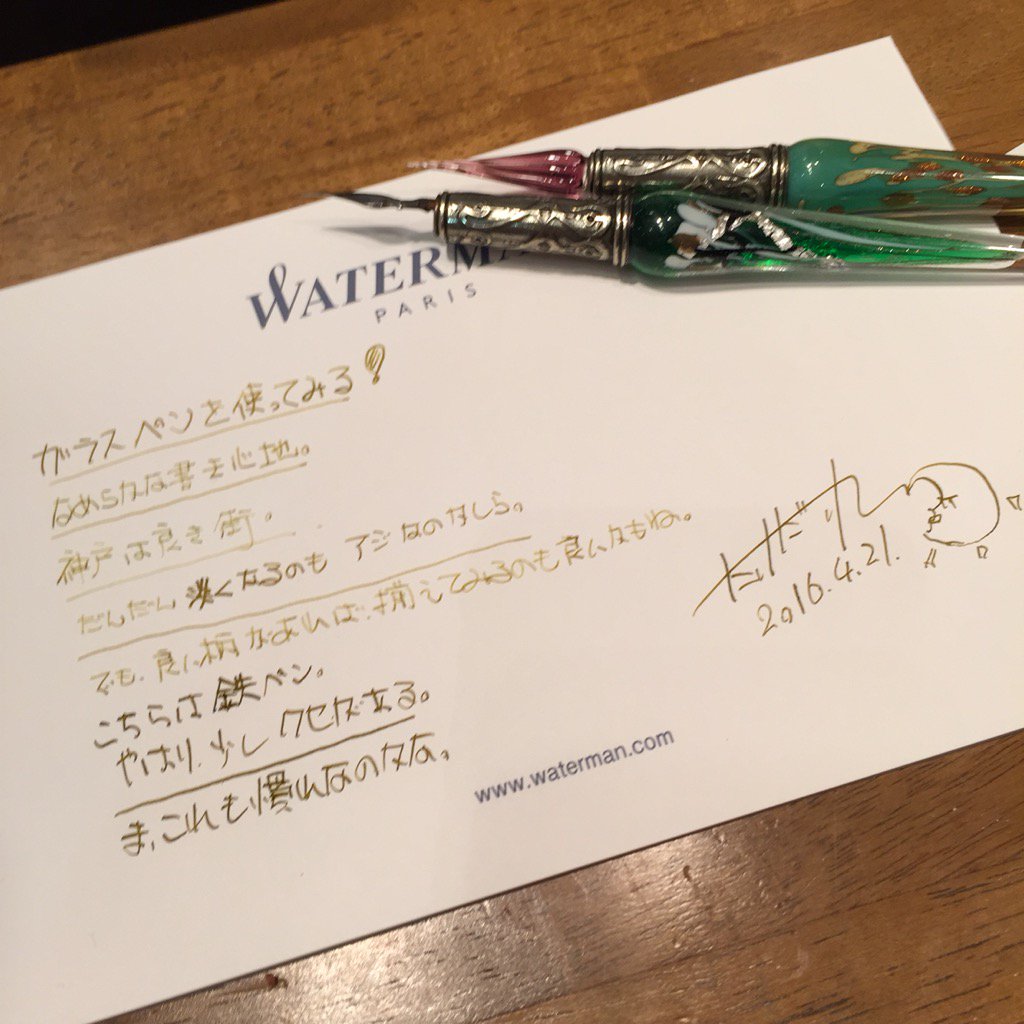 WATERMA
PARIS
ガラスペンを使ってみる!
なめらかな書き心地。
神戸は良き街。
だんだん淡くなるのもアジなのかしら。
でも、良い柄があれば、揃えてみるのも良いかもね。
こちらは鉄ペン。
やはり、少しクセがある。
ま、これも慣れなのかな。
2016.4.21.
www.waterman.com